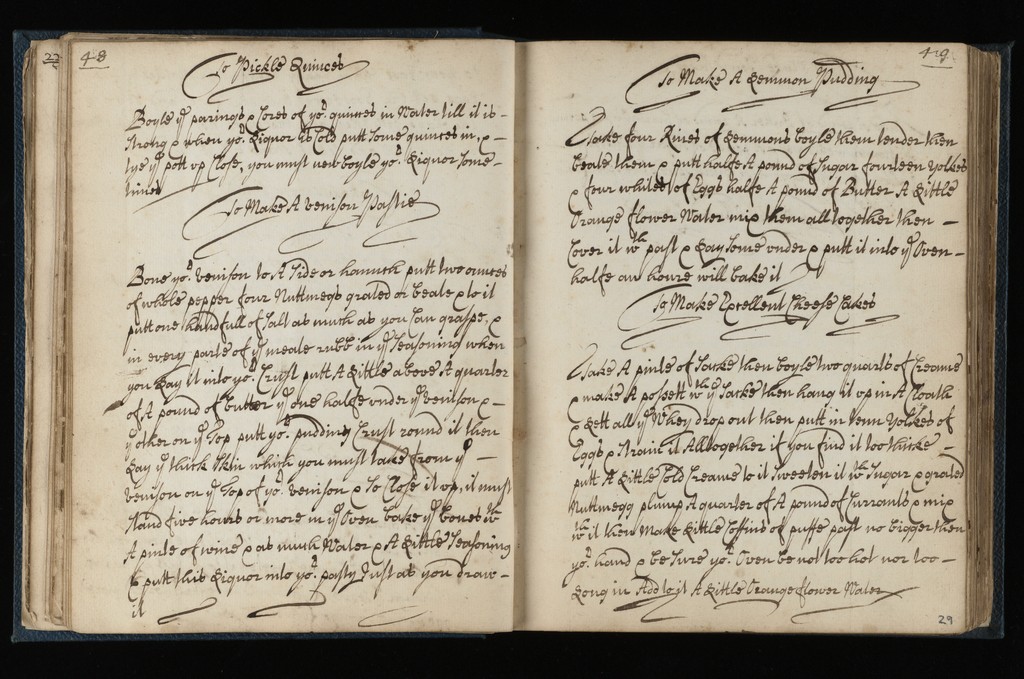 48
To Pickle Quinces
Boyle ye parings & Cores of yor quinces in Water till it is
strong & when yor Liquor is Cold putt some quinces in, &
tye ye pott up Close, you must new boyle yor Liquor some
times
To Make A Venison Pastie
Bone yor Venison to A side or haunch putt two ounces
of whole pepper four Nuttmegs grated or beate & to it
putt one handfull of Salt as much as you Can graspe, &
in every parte of ye meate rubb in ye seasoning when
you Lay it into yor Crust putt A Little above A quarter
of A pound of butter ye one halfe under ye venison &
ye other on ye Top putt yor pudding Crust round it then
Lay ye thick skin which you must take from ye
Venison on ye Top of yor Venison & so Close it up, it must
stand five hours or more in ye Oven bake ye bones wth
A pinte of wine & as much Water & A Little seasoning
& putt this Liquor into yor pasty Just as you draw
it
49
To Make A Lemmon Pudding
Take four Rines of Lemmons boyle them tender then
beate them & putt halfe A pound of sugar fourteen yolkes
& four whites of Eggs halfe A pound of Butter A Little
Orange flower Water mix them all together then
Cover it wth past & Lay some under & putt it into ye Oven
halfe an houre will bake it
To Make Excellent Cheese Cakes
Take A pinte of Sacke then boyle two quarts of Creame
& make A possett wth ye Sacke then hang it up in A Cloath
& Lett all ye Whey drop out then putt in Tenn Yolkes of
Eggs & straine it All together if you find it too thicke
putt A Little Cold Creame to it sweeten it wth sugar & grated
Nuttmegg plump A quarter of A pound of Currants & mix
wth it then Make Little Coffins of puffe past no bigger then
yor hand & be sure yor Oven be not too hot nor too
Long in Add to it A Little Orange flower Water
29